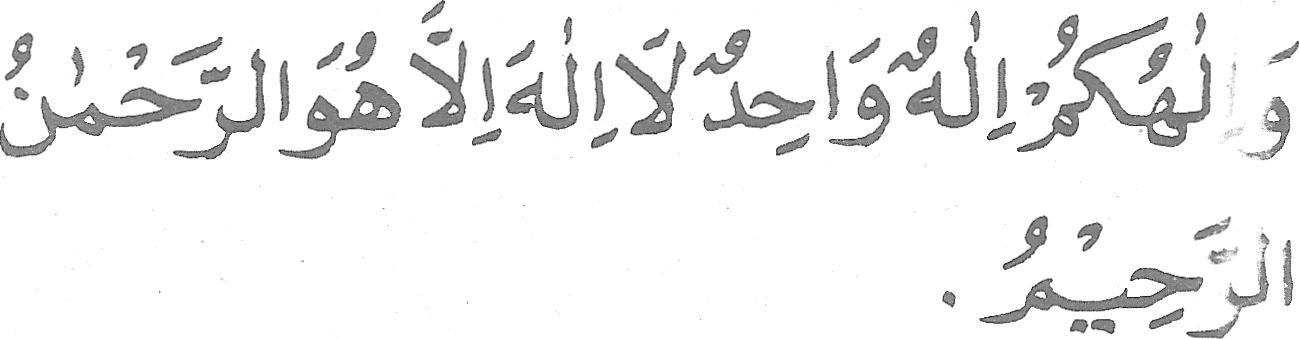 وَاِلٰهُكُمْ اِلٰهٌ وَاحِدٌ لَا اِلٰهَ اِلَّا هُوَ الرَّحْمٰنُ
الرَّحِيْمُ.